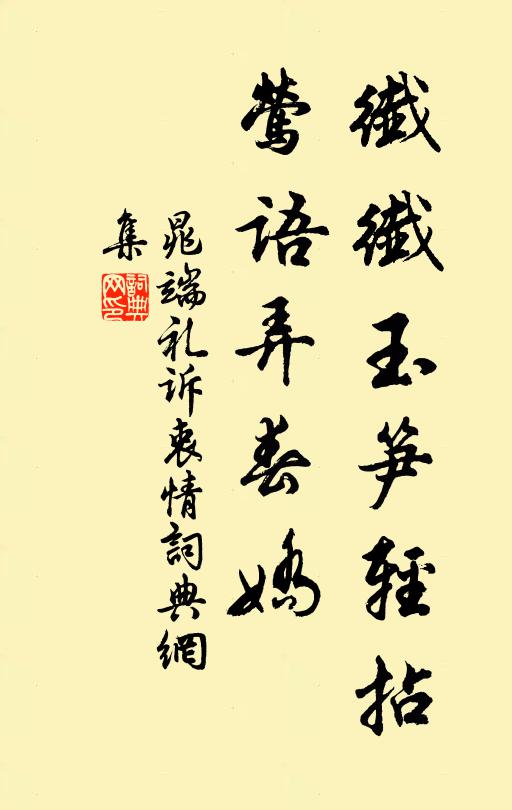 纖纖玉笋輕拈
鶯語弄春嬌
晁端礼訴衷情詞典網
集
詞典網印